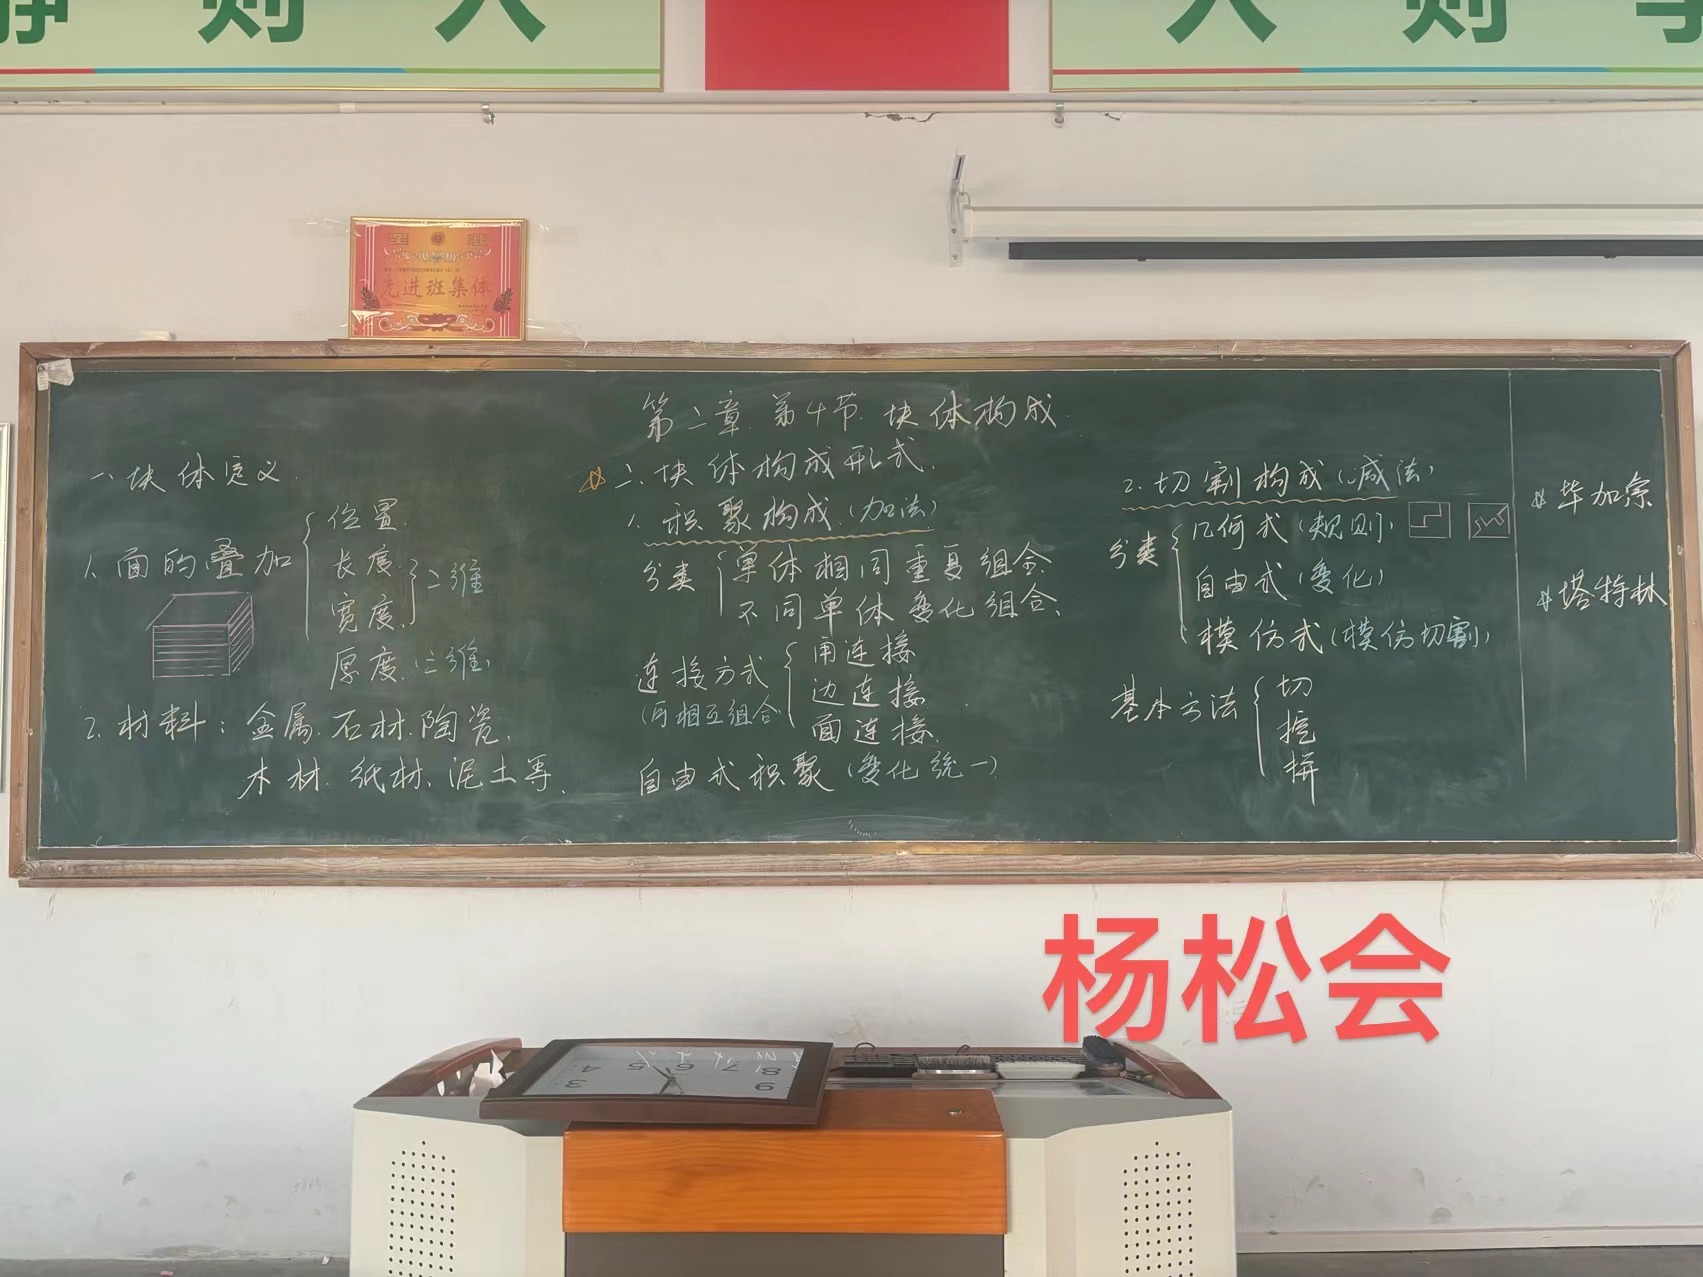 静 则 人
人 则 学
奖 状
先进班集体
第二章 第4节 块体构成
一、块体定义
1、面的叠加
位置
长度
宽度
二维
厚度(三维)
2、材料：金属、石材、陶瓷、
木材、纸材、泥土等、
☆二、块体构成形式、
1、积聚构成(加法)
分类
单体相同重复组合、
不同单体变化组合、
连接方式
(可相互组合)
角连接
边连接
面连接、
自由式积聚(变化统一)
2、切割构成(减法)
分类
几何式(规则)
自由式(变化)
模仿式(模仿切割)
基本方法
切
挖
拼
☆毕加索
☆塔特林
杨松会
3 4 5 6 7 8 9